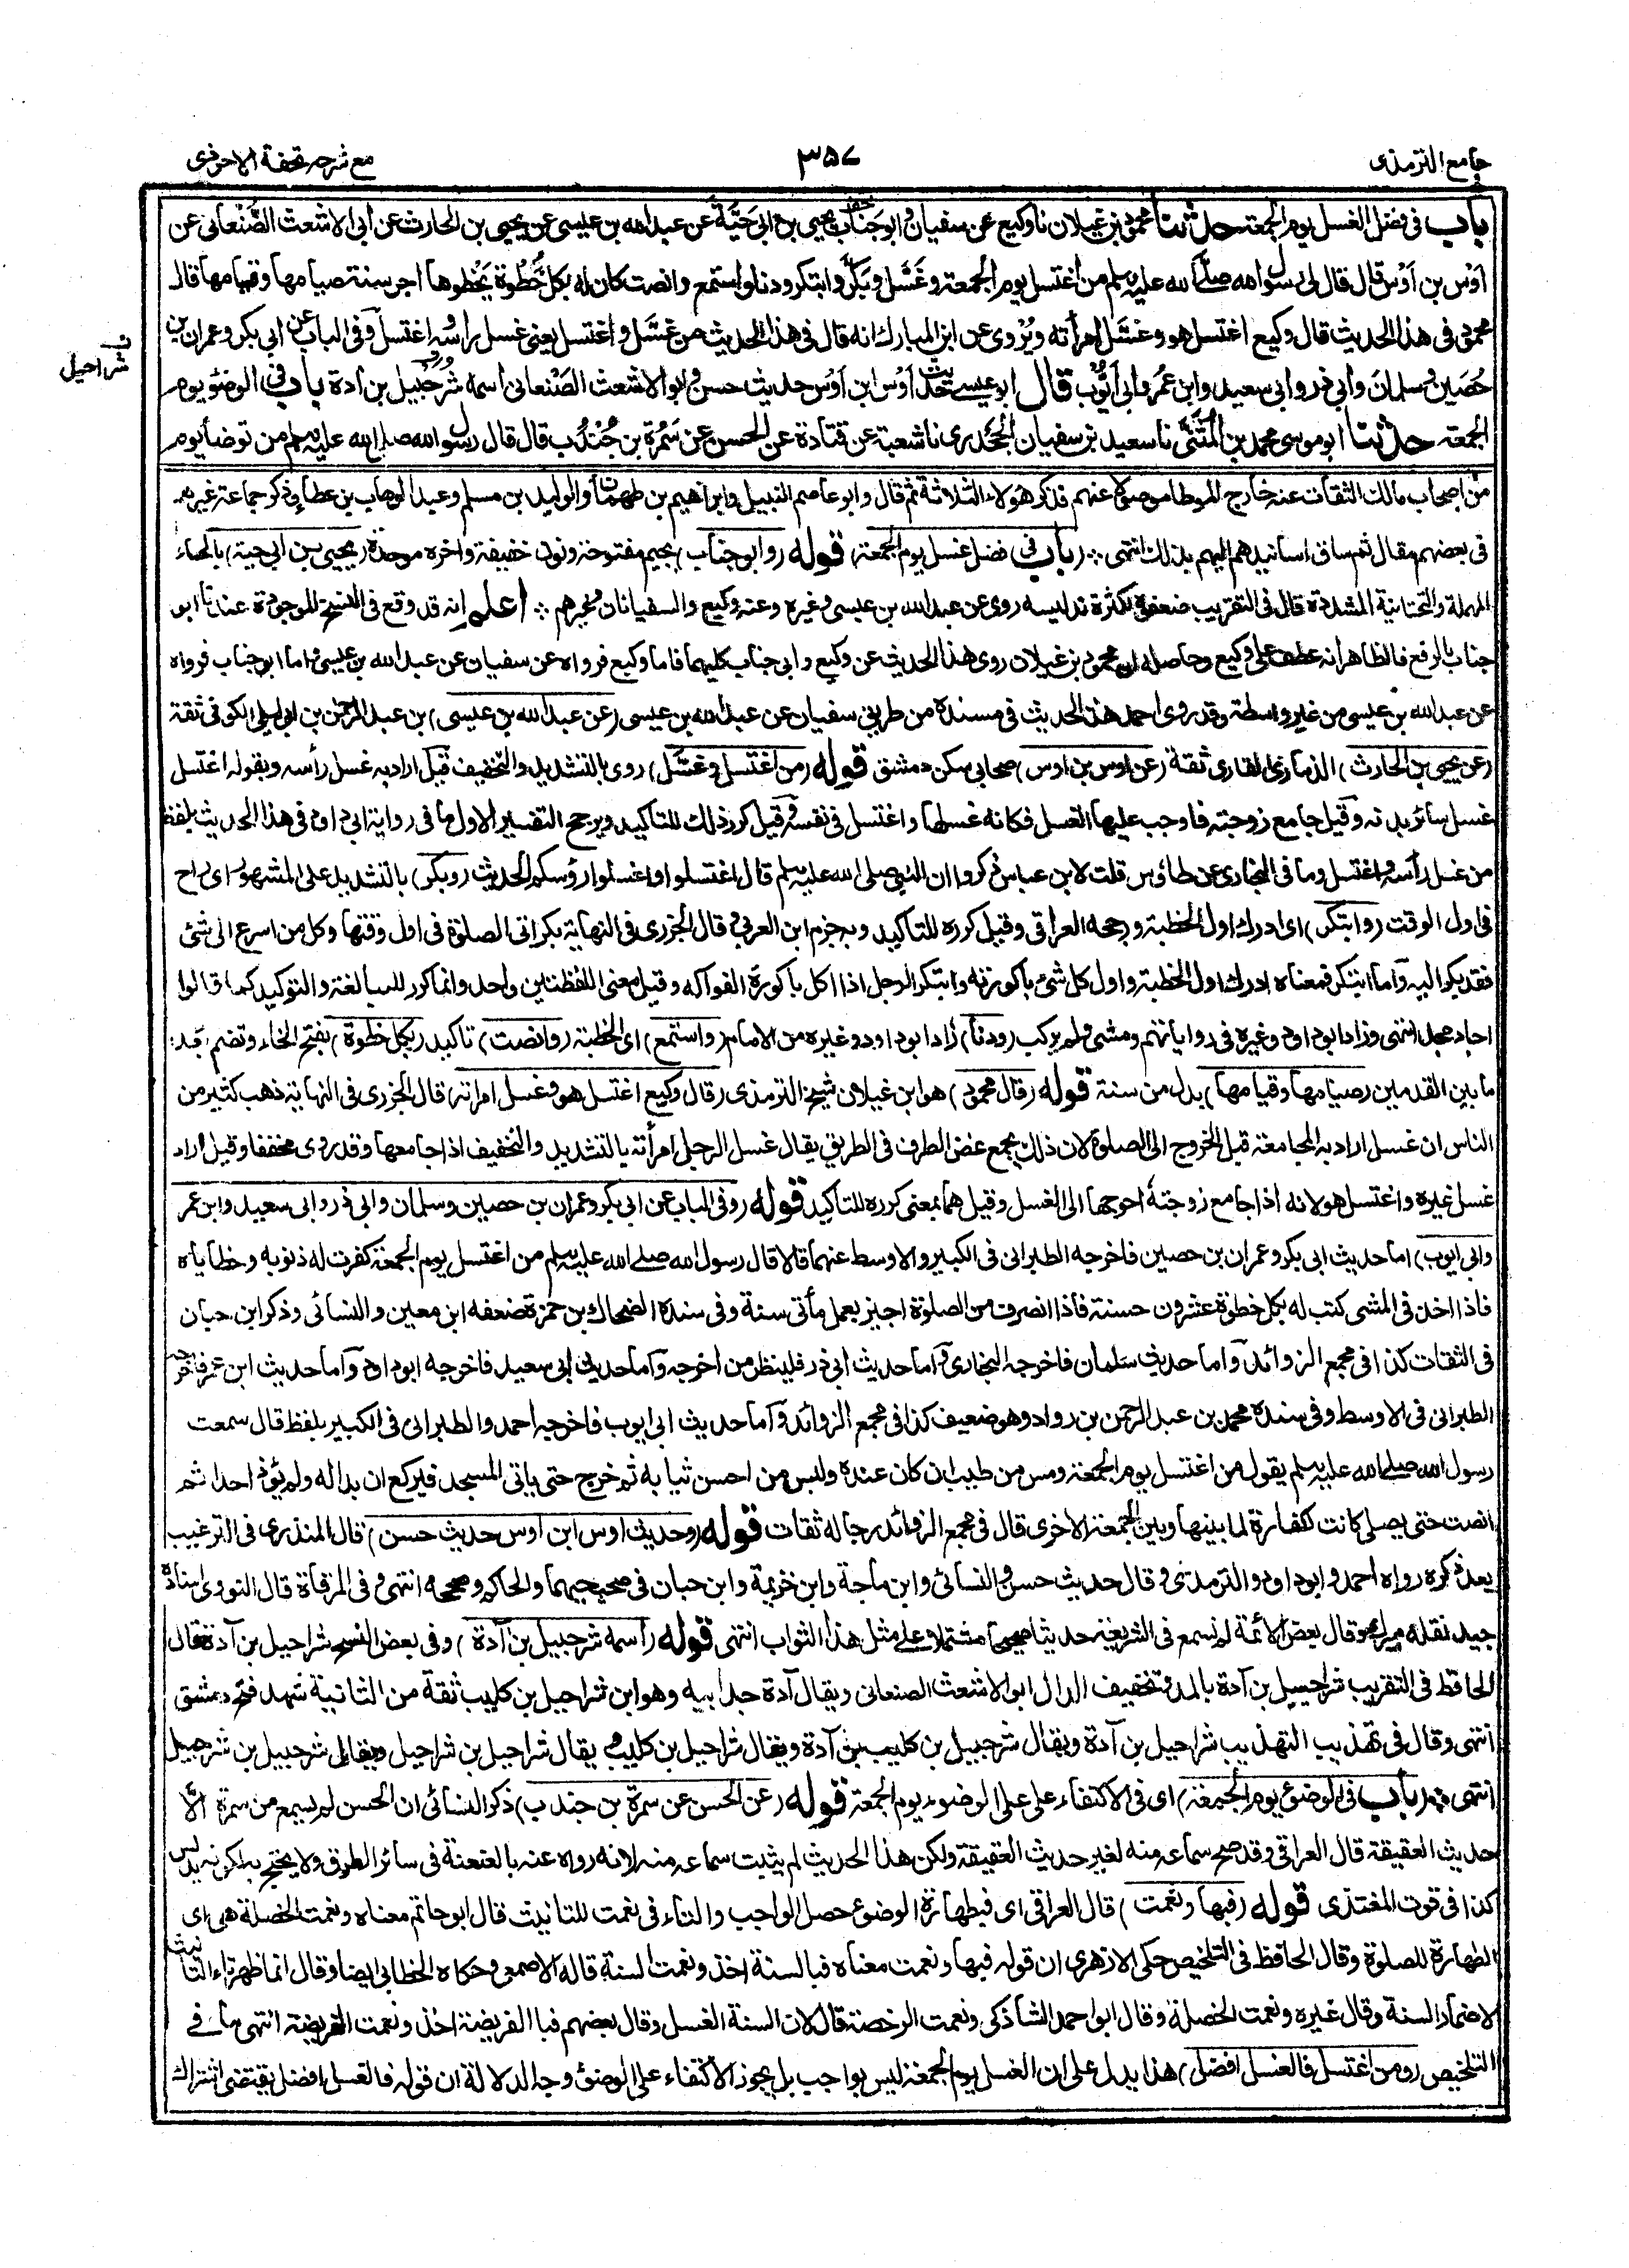 جامع الترمذى
٣٥٧
مع شرحه تحفة الاحوذى
باب فى فضل الغسل يوم الجمعة حدثنا محمود بن غيلان نا وكيع عن سفيان وابو جناب يحيى بن ابى حَيَّة عن عبد الله بن عيسى عن يحيى بن الحارث عن ابى الاشعث الصَّنْعانى عن
اَوْس بن اَوْس قال قال لى رسول الله صلى الله عليه وسلم من اغتسل يوم الجمعة وغَسَّل وبَكَّر وابتكر ودنا واستمع وانصت كان له بكل خُطْوة يَخْطوها اجر سنة صيامها وقيامها قال
محمود فى هذا الحديث قال وكيع اغتسل هو وغَسَّل امرأته ويُرْوى عن ابن المبارك انه قال فى هذا الحديث من غَسَّل واغتسل يعنى غسل رأسه اغتسل وفى الباب عن ابى بكر وعمران بن
حُصَين وسلمان وابى ذر وابى سعيد وابن عُمر وابى اَيُّوب قال ابو عيسى حديث اَوْس ابن اَوْس حديث حسن وابو الاشعث الصَنْعانى اسمه شُرَحْبيل بن ادة باب فى الوضوء يوم
شراحيل
الجمعة حدثنا ابو موسى محمد بن المُثَنَّى نا سعيد بن سفيان الجَحْدرى نا شعبة عن قتادة عن الحسن عن سَمُرة بن جُنْدُب قال قال رسول الله صلى الله عليه وسلم من توضأ يوم
من اصحاب مالك الثقات عنه خارج الموطا موصولا عنهم فذكر هؤلاء الثلاثة ثم قال وابو عاصم النبيل وابراهيم بن طهمان والوليد بن مسلم وعبد الوهاب بن عطاء وذكر جماعة غيرهم
فى بعضهم مقال ثم ساق اسانيدهم اليهم بذلك انتهى (باب فى فضل غسل يوم الجمعة) قوله (وابو جناب) بجيم مفتوحة ونون خفيفة واخره موحدة (يحيى بن ابى حية) بالحاء
المهملة والتحتانية المشددة قال فى التقريب ضعفوه لكثرة تدليسه روى عن عبد الله بن عيسى وغيره وعنه وكيع والسفيانان وغيرهم اعلم انه قد وقع فى النسخ الموجودة عندنا ابو
جناب بالرفع فالظاهر انه عطف على وكيع وحاصله ان محمود بن غيلان روى هذا الحديث عن وكيع وابى جناب كليهما فاما وكيع فرواه عن سفيان عن عبد الله بن عيسى واما ابو جناب فرواه
عن عبد الله بن عيسى من غير واسطة وقد روى احمد هذا الحديث فى مسنده من طريق سفيان عن عبد الله بن عيسى (عن عبد الله بن عيسى) بن عبد الرحمن بن ابى ليلى الكوفى ثقة
(عن يحيى بن الحارث) الذمارى القارى ثقة (عن اوس بن اوس) صحابى سكن دمشق قوله (من اغتسل وغسل) روى بالتشديد والتخفيف قيل اراد به غسل رأسه وبقوله اغتسل
غسل سائر بدنه وقيل جامع زوجته فاوجب عليها الغسل فكانه غسلها واغتسل فى نفسه وقيل كرر ذلك للتاكيد ويرجح التفسير الاول ما فى رواية ابى داود فى هذا الحديث بلفظ
من غسل رأسه واغتسل وما فى البخارى عن طاؤس قلت لابن عباس ذكروا ان النبى صلى الله عليه وسلم قال اغتسلوا واغسلوا رؤسكم الحديث (وبكر) بالتشديد على المشهور اى راح
فى اول الوقت (وابتكر) اى ادرك اول الخطبة ورجحه العراقى وقيل كرره للتاكيد وبه جزم ابن العربى وقال الجزرى فى النهاية بكر اتى الصلوة فى اول وقتها وكل من اسرع الى شئ
فقد بكر اليه واما ابتكر فمعناه ادرك اول الخطبة واول كل شئ باكورته وابتكر الرجل اذا اكل باكورة الفواكه وقيل معنى اللفظتين واحد وانما كرر للمبالغة والتوكيد كما قالوا
جاد مجد انتهى وزاد ابو داود وغيره فى رواياتهم ومشى ولم يركب (ودنا) زاد ابو داود وغيره من الامام (واستمع) اى الخطبة (وانصت) تاكيد (بكل خطوة) بفتح الخاء وتضم بعد
ما بين القدمين (صيامها وقيامها) بدل من سنة قوله (قال محمود) هو ابن غيلان شيخ الترمذى (قال وكيع اغتسل هو وغسل امراته) قال الجزرى فى النهاية ذهب كثير من
الناس ان غسل اراد به المجامعة قبل الخروج الى الصلوة لان ذلك يجمع غض الطرف فى الطريق يقال غسل الرجل امرأته بالتشديد والتخفيف اذا جامعها وقد روى مخففا وقيل اراد
غسل غيره واغتسل هو لانه اذا جامع زوجته احوجها الى الغسل وقيل هما بمعنى كرره للتاكيد قوله (وفى الباب عن ابى بكر وعمران بن حصين وسلمان وابى ذر وابى سعيد وابن عمر
وابى ايوب) اما حديث ابى بكر وعمران بن حصين فاخرجه الطبرانى فى الكبير والاوسط عنهما قالا قال رسول الله صلى الله عليه وسلم من اغتسل يوم الجمعة كفرت له ذنوبه وخطاياه
فاذا اخذ فى المشى كتب له بكل خطوة عشرون حسنة فاذا انصرف من الصلوة اجيز بعمل مأتى سنة وفى سنده الضحاك بن حمزة ضعفه ابن معين والنسائى وذكر ابن حبان
فى الثقات كذا فى مجمع الزوائد واما حديث سلمان فاخرجه البخارى واما حديث ابى ذر فلينظر من اخرجه واما حديث ابى سعيد فاخرجه ابو داود واما حديث ابن عمر فاخرجه
الطبرانى فى الاوسط وفى سنده محمد بن عبد الرحمن بن رواد وهو ضعيف كذا فى مجمع الزوائد واما حديث ابى ايوب فاخرجه احمد والطبرانى فى الكبير بلفظ قال سمعت
رسول الله صلى الله عليه وسلم يقول من اغتسل يوم الجمعة ومس من طيب ان كان عنده ولبس من احسن ثيابه ثم خرج حتى ياتى المسجد فيركع ان بدا له ولم يؤذ احدا ثم
انصت حتى يصلى كانت كفارة لما بينها وبين الجمعة الاخرى قال فى مجمع الزوائد رجاله ثقات قوله (وحديث اوس ابن اوس حديث حسن) قال المنذرى فى الترغيب
بعد ذكره رواه احمد وابو داود والترمذى وقال حديث حسن والنسائى وابن ماجة وابن خزيمة وابن حبان فى صحيحيهما والحاكم وصححه انتهى وفى المرقاة قال النووى اسناده
جيد نقله ميرك وقال بعض الائمة لم نسمع فى الشريعة حديثا صحيحا مشتملا على مثل هذا الثواب انتهى قوله (اسمه شرحبيل بن آدة) وفى بعض النسخ شراحيل بن آدة قال
الحافظ فى التقريب شراحيل بن آدة بالمد وتخفيف الدال ابو الاشعث الصنعانى ويقال آدة جد ابيه وهو ابن شراحيل بن كليب ثقة من الثانية شهد فتح دمشق
انتهى وقال فى تهذيب التهذيب شراحيل بن آدة ويقال شرحبيل بن كليب بن آدة ويقال شراحيل بن كليب ويقال شراحيل بن شراحيل ويقال شرحبيل بن شرحبيل
انتهى (باب فى الوضوء يوم الجمعة) اى فى الاكتفاء على الوضوء يوم الجمعة قوله (عن الحسن عن سمرة بن جندب) ذكر النسائى ان الحسن لم يسمع من سمرة الا
حديث العقيقة قال العراقى وقد صح سماعه منه لغير حديث العقيقة ولكن هذا الحديث لم يثبت سماعه منه لانه رواه عنه بالعنعنة فى سائر الطرق ولا يحتج به لكونه يدلس
كذا فى قوت المغتذى قوله (فبها ونعمت) قال العراقى اى فبطهارة الوضوء حصل الواجب والتاء فى نعمت للتانيث قال ابو حاتم معناه ونعمت الخصلة هى اى
الطهارة للصلوة وقال الحافظ فى التلخيص حكى الازهرى ان قوله فبها ونعمت معناه فبالسنة اخذ ونعمت السنة قاله الاصمعى وحكاه الخطابى ايضا وقال انما ظهر تاء التانيث
لاضمار السنة وقال غيره ونعمت الخصلة وقال ابو احمد الشاذكى ونعمت الرخصة قال لان السنة الغسل وقال بعضهم فبا الفريضة اخذ ونعمت الفريضة انتهى ما فى
التلخيص (ومن اغتسل فالغسل افضل) هذا يدل على ان الغسل يوم الجمعة ليس بواجب بل يجوز الاكتفاء على الوضوء وجه الدلالة ان قوله فالغسل افضل يقتضى اشتراك